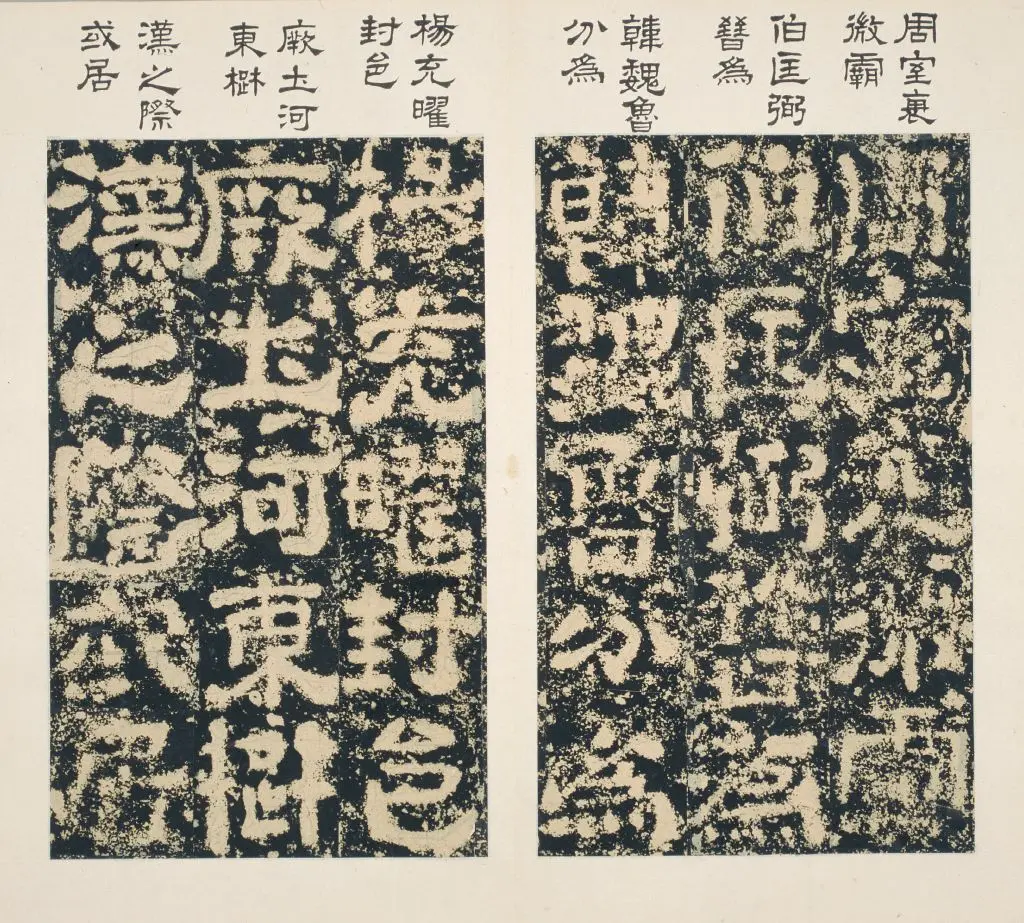 周室衰
微霸
伯匡弼
晉為
韓魏魯
分為
楊充曜
封邑
厥土河
東楚
漢之際
或居
周室衰微霸
伯匡弼晉為
韓魏魯分為
楊充曜封邑
厥土河東楚
漢之際或居